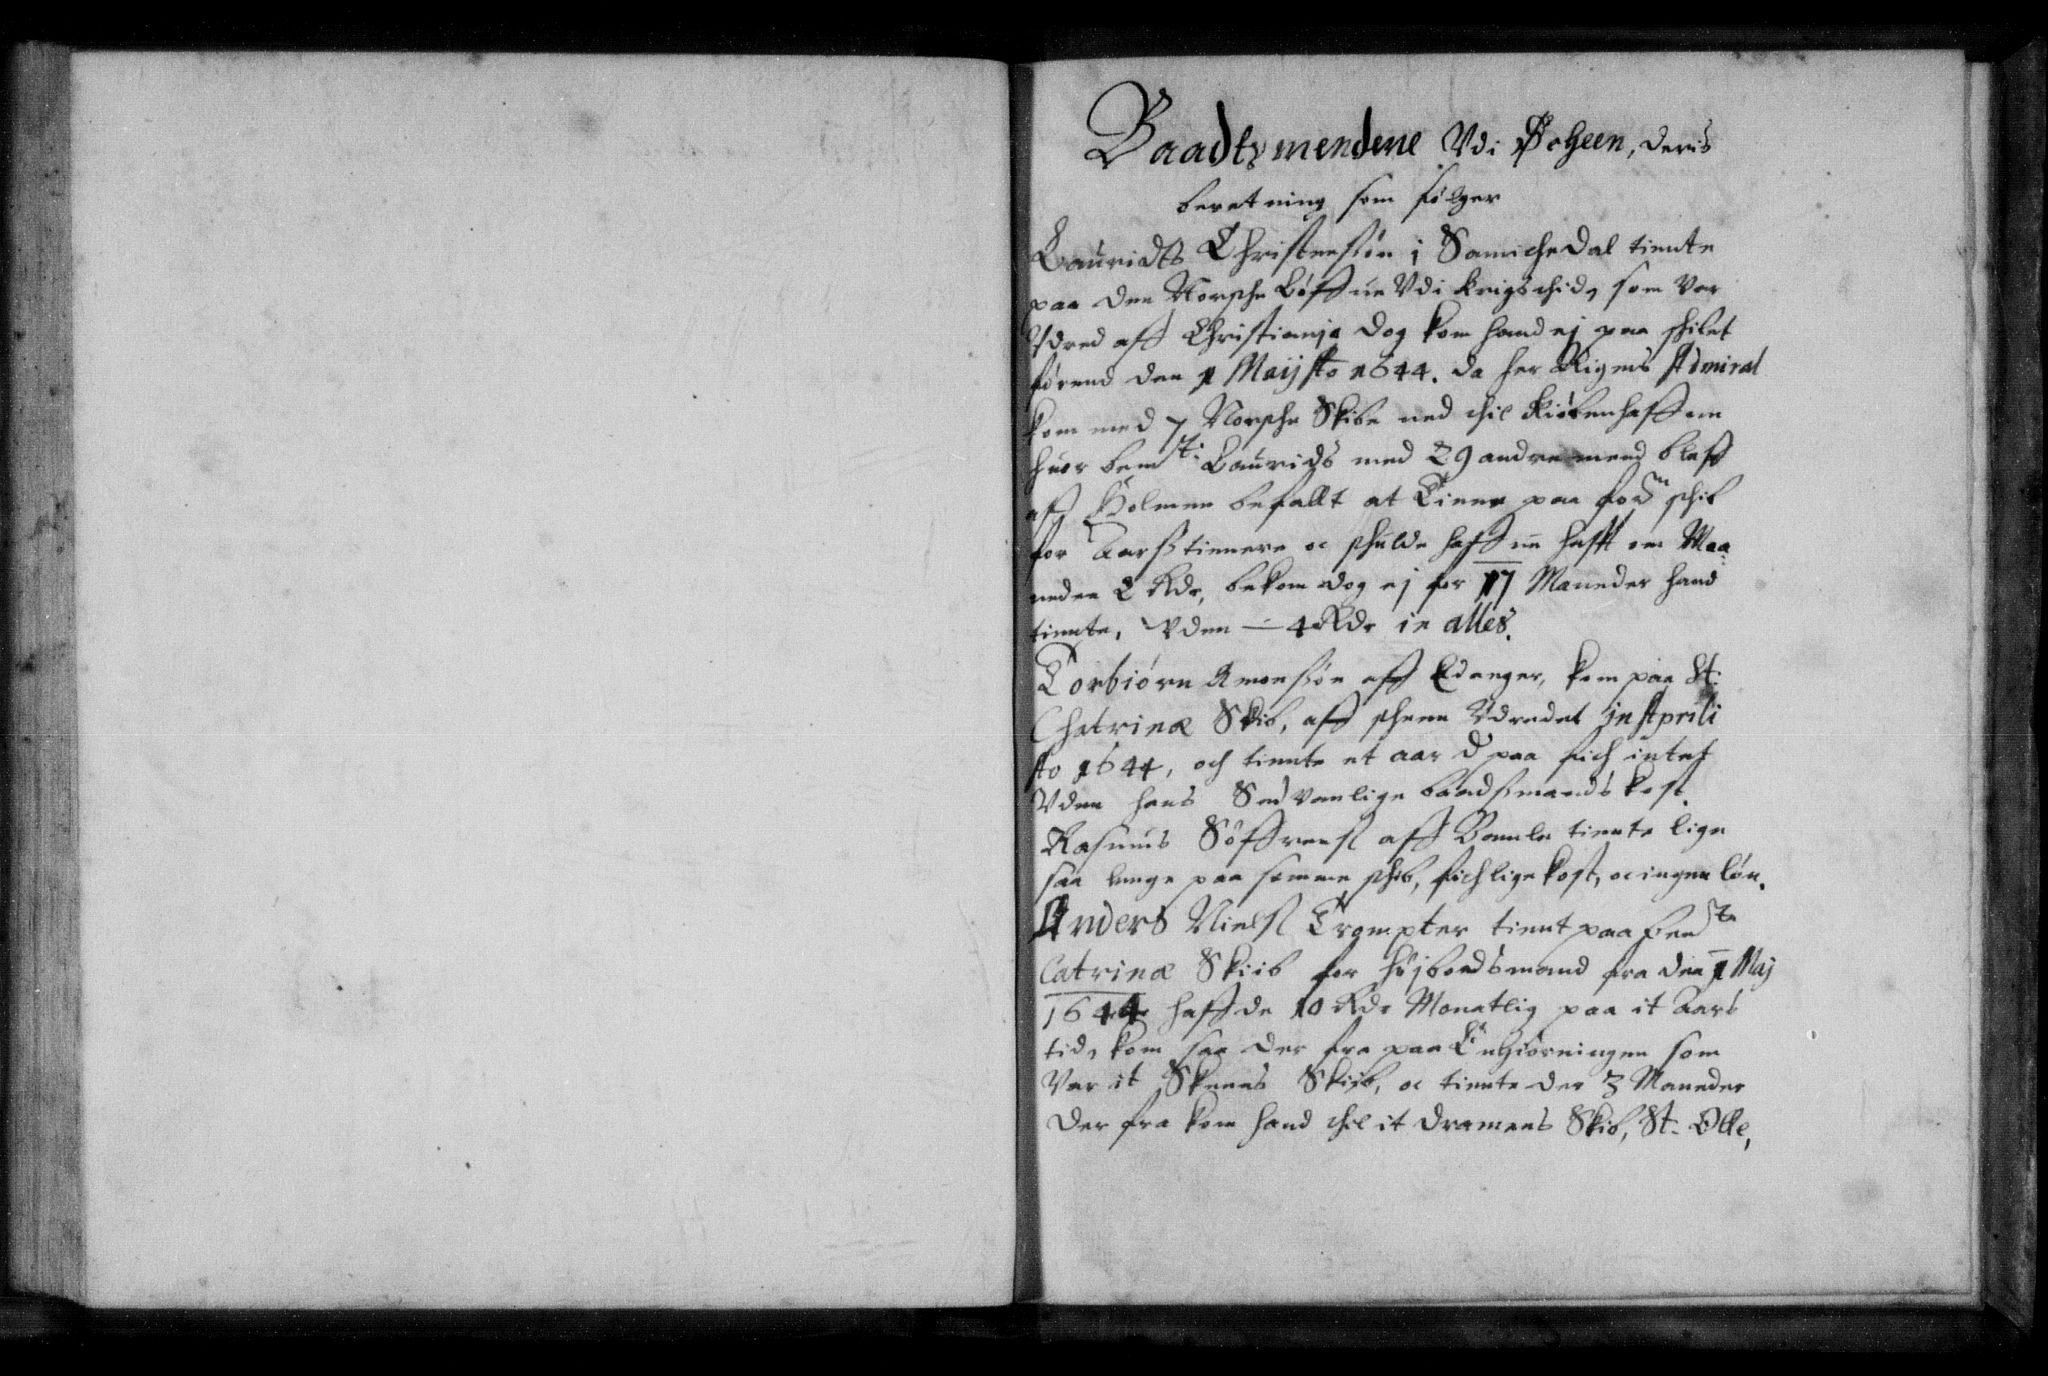 Baadtzmendene Vdi Scheen, deris
beretning som følger
Lauridts Christensøn i Sanniche Dal tiente
paa den Norsche Løffue Vdi krigs thid, som Var
Vdred aff Christiania dog kom hand ej paa skibet
førend den 1 Maij Ao 1644. da her Rigens Admiral
kom med 7 Norsche Skibe ned thil Kiøbenhaffuen
huor bemte: Laurids med 29 andre mend bleff
aff Holmen befallt at Tiene paa fordn schib
for Aarsstienere oc schulde haffue hafft om Maa-
neden 2 Rdr, bekom dog ej for 17 Maneder hand
tiente, Vden — 4 Rdr in alles.
Torbiørn Amonsøn aff Edanger, kom paa St:
Chatrinæ Skib, aff scheen Vdredet in Aprili
Ao 1644, och tiente et aar der paa fich intet
Vden hans Sedvanlige baadsmands kost.
Rasmus Søffrensl aff Bamle tiente lige
saa lenge paa samme schib, fich lige kost, oc ingen løn.
Anders Nielsl Trompter tient paa bemte
Catrinæ Skiib for højbaadsmand fra den 1 Maj
1644 haffde 10 Rdr Monatlig paa it Aars
tid, kom saa der fra paa Enhiørningen som
Var it Skeens Skiib, oc tiente der 3 Maneder
der fra kom hand thil it Dramens Skib, St. Olle,